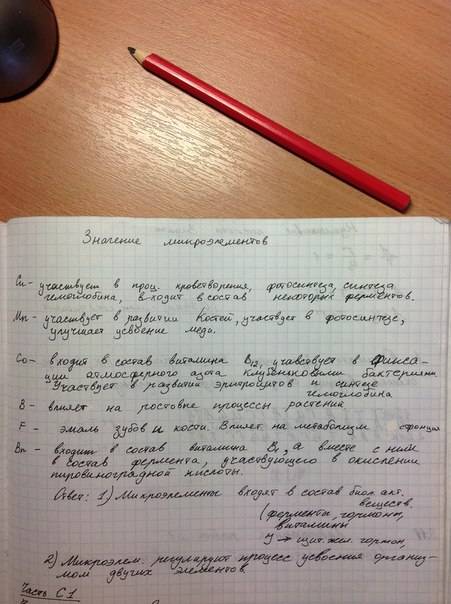 Значение микроэлементов
Cu - участвует в проц. кроветворения, фотосинтеза, синтеза
гемоглобина, входит в состав некоторых ферментов.
Mn - участвует в развитии костей, участвует в фотосинтезе,
улучшает усвоение меди.
Co - входит в состав витамина B12, учавствует в фикса-
ции атмосферного азота клубеньковыми бактериями
Участвует в развитии эритроцитов и синтезе
гемоглобина
B - влияет на ростовые процессы растений
F - эмаль зубов и кости. Влияет на метаболизм стронция
входит в состав витамина B1, а вместе с ним
в состав фермента, участвующего в окислении
пировиноградной кислоты.
Ответ: 1) Микроэлементы входят в состав биол. акт.
веществ.
(ферменты, гормоны,
витамины
J → щит. жел. гормон,
2) Микроэлем. регулируют процесс усвоения организ-
мом других элементов.
Часть С1